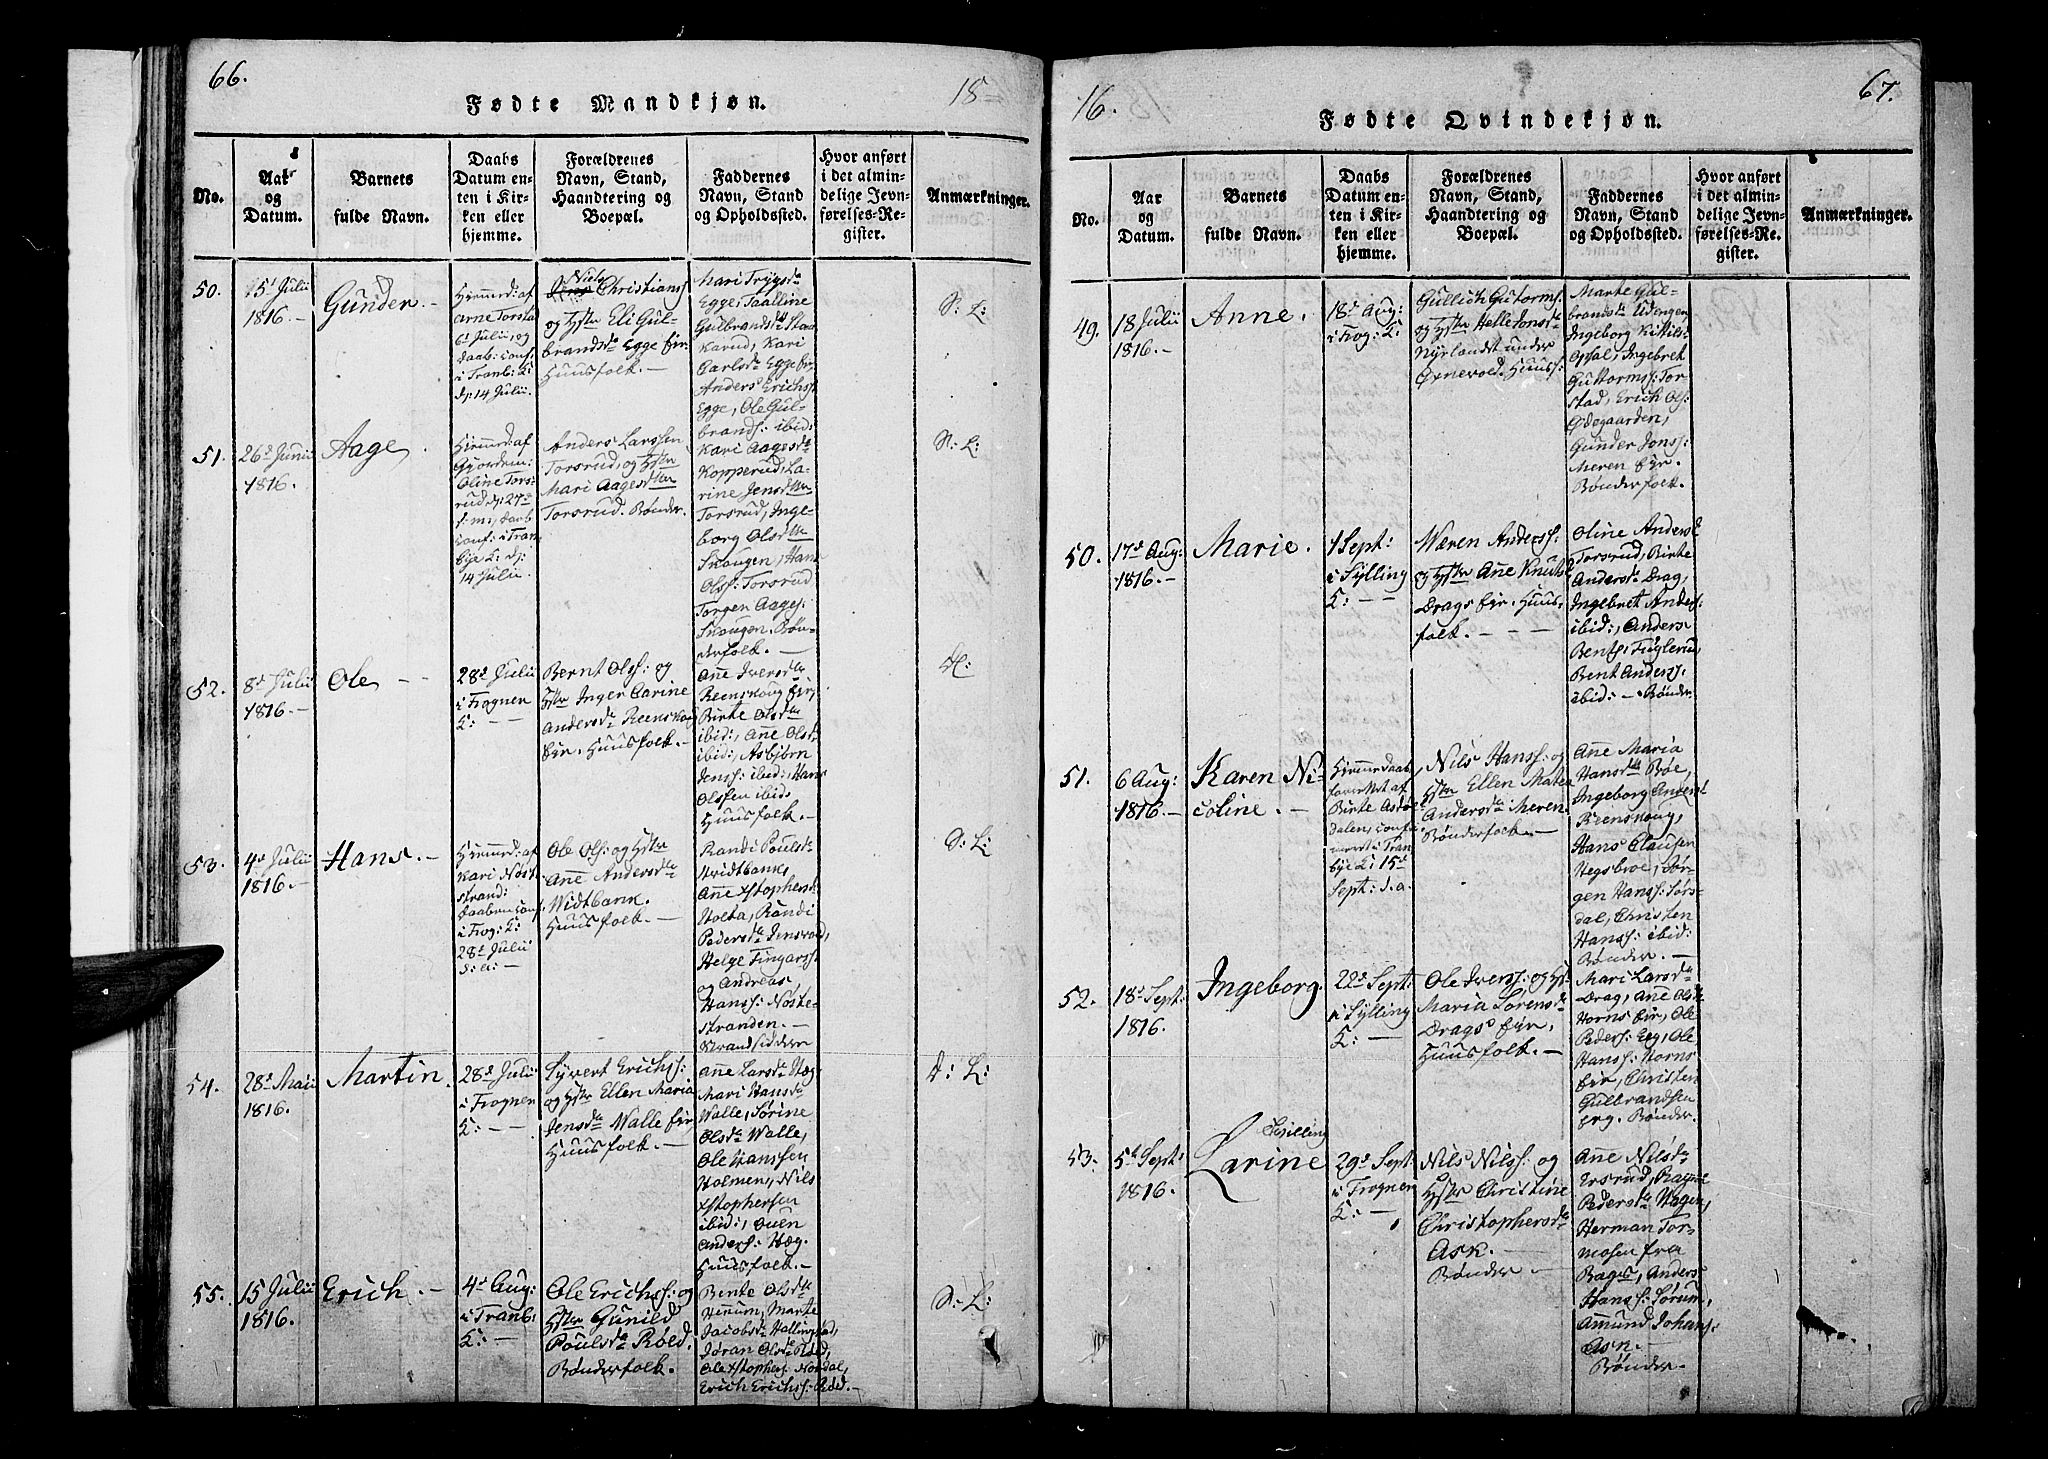 66.
18
Fødte Mandkjøn.
No.
Aar
og
Datum.
Barnets
fulde Navn.
Daabs
Datum en-
ten i Kir-
ken eller
hjemme.
Forældrenes
Navn, Stand,
Haandtering og
Boepæl.
Faddernes
Navn, Stand
og Opholdssted.
Hvor anført
i det almin-
delige Jevn-
førelses-Re-
gister.
Anmærkninger.
50.
15 Julii
1816.
Gunder.
Hjemmed: af
Arne Torstad
Julii, og
Daab: conf:
i Tranb: K:
d: 14 Julii.
Niels
Christians:
og Hstr Eli Gul-
brandsdr Egge Eje
Huusfolk.
Mari Trygsdr
Egge, Taalline
Gulbrandsdr
Karud, Kari
Carlsdr Egge
Anders Erichs:
Egge, Ole Gul-
brands: ibid:
S: L:
51.
26d Junii
1816.
Aage
Hjemmed: af
Gjordem:
Oline Tors-
rud, d: 27d
s: m:, Daab
conf: i Tran
bye K: d:
14 Julii.
Anders Larssen
Torsrud, og Hstr
Mari Aagesdtter
Torsrud. Bønder.
Kari Aagesdr
Kopperud, La-
rine Jensdtter
Torsrud, Inge-
borg Olsdtter
Skougen, Hans
Ols: Torsrud
Torgen Aages:
Skougen. Bøn-
derfolk.
S: L:
52.
8d Julii
1816.
Ole
28d Julii
i Frogner
K:
Bernt Ols: og
Hstr Inger Carine
Andersdr Reenskoug
Eje. Huusfolk.
Ane Iversdr
Reenskoug Eje,
Birte Olsdr
ibid:, Ane Olsdr
ibid:, Asbjørn
Jens: ibid:, Hans
Olssen ibid:
Huusfolk.
53.
4d Julii
1816.
Hans.
Hjemmed: af
Kari Nøst-
strand:
Daaben conf.
i Frog: K:
28d Julii
s: a:
Ole Ols: og Hstr
Ane Andersdr
Widtbank.
Huusfolk.
Randi Poulsdr
Hvidtbank
Anne Xstophersdr
Holta, Randi
Pedersdr Jensvold,
Helge Fingars:
og Andreas
Hans: Nøste-
stranden.
Strandsiddere
S: L:
54.
28d Maii
1816.
Martin.
28d Julii
i Frogner
K:
Syvert Erichs:
og Hstr Ellen Maria
Jensdr Walle Eje,
Huusfolk.
Ane Larsdr Hæg
Mari Hansdr
Walle, Sørine
Olsdr Walle,
Ole Hanssen
Holmen, Nils
Xstophersen
ibid:, Ouen
Anders: Hæg.
Huusfolk.
D: L:
55.
15 Julii
1816.
Erich.
4d Aug:
i Tranb:
K:
Ole Erichs: og
Hstr Gunild
Poulsdr Røed.
Bønderfolk.
Bente Olsdr
Hennum, Marte
Jacobsdr Hallingstad,
Jøran Olsdr Røed,
Ole Xstophers: Nordal,
Erich Erichs: Røed.
S: L:
16.
67.
Fødte Qvindekjøn.
No.
Aar
og
Datum.
Barnets
fulde Navn.
Daabs
Datum en-
ten i Kir-
ken eller
hjemme.
Forældrenes
Navn, Stand,
Haandtering og
Boepæl.
Faddernes
Navn, Stand
og Opholdssted.
Hvor anført
i det almin-
delige Jevn-
førelses-Re-
gister.
Anmærkninger.
49.
18 Julii
1816.
Anne.
18d Aug:
i Frog: K:
Gullich Gutorms:
og Hstr Helle Jonsdr
Nyrlandst under
Øxnevold. Huusf:
Marte Gul-
brandsdr Udengen,
Ingeborg Kittils-
Opsal, Ingebret
Guttorms: Tor-
stad, Erich Ols:
Ødegaarden,
Gunder Jons:
Meren Eje.
Bønderfolk.
50.
17d Aug:
1816.
Marie.
1 Sept:
i Sylling
K:
Wæren Anders:
og Hstr Ane Knutsdr
Drags Eje. Huus-
folk.
Oline Andersd
Torsrud, Birte
Andersdr Drag,
Ingebret Anders:
ibid:, Anders
Bents: Fuglerud
Bent Anders:
ibid: Bønder.
51.
6 Aug:
1816.
Karen Ni-
coline.
Hjemmedaab
forrettet af
Birte Asdø-
Dalen, conf-
meret i Tran
bye K: 15d
Sept: s. a.
Nils Hans: og
Hstr Ellen Maten
Andersdr Meren.
Bønderfolk.
Ane Maria
Hansdr Bøe,
Ingeborg Andersd
Reenskoug,
Hans Clausen
Hegsbroe, Jør-
gen Hans: Sørs-
dal, Christen
Hans: ibid:
Bønder.
52.
18d Sept:
1816.
Ingeborg.
22d Sept:
i Sylling
K:
Ole Ivers: og Hst-
Maria Lorensdr
Drags Eje,
Huusfolk.
Mari Larsdr
Drag, Ane Olsdr
Horns Eje, Ole
Peders: Eeg, Ole
Hans: Horns
Eje, Christen
Gulbrandsen
Bønder.
53.
5d Sept:
1816.
Tvilling
Larine
29d Sept:
i Frogner
K:
Nils Nils: og
Hstr Christine
Christophersdr
Ask.
Bønder
Ane Nilsdr
Ersrud, Ragne
Pedersdr Hagen,
Herman Tor-
mosen fra
Rages, Anders
Hans: Sørum,
Amund Johans:
Ask.
Bønder